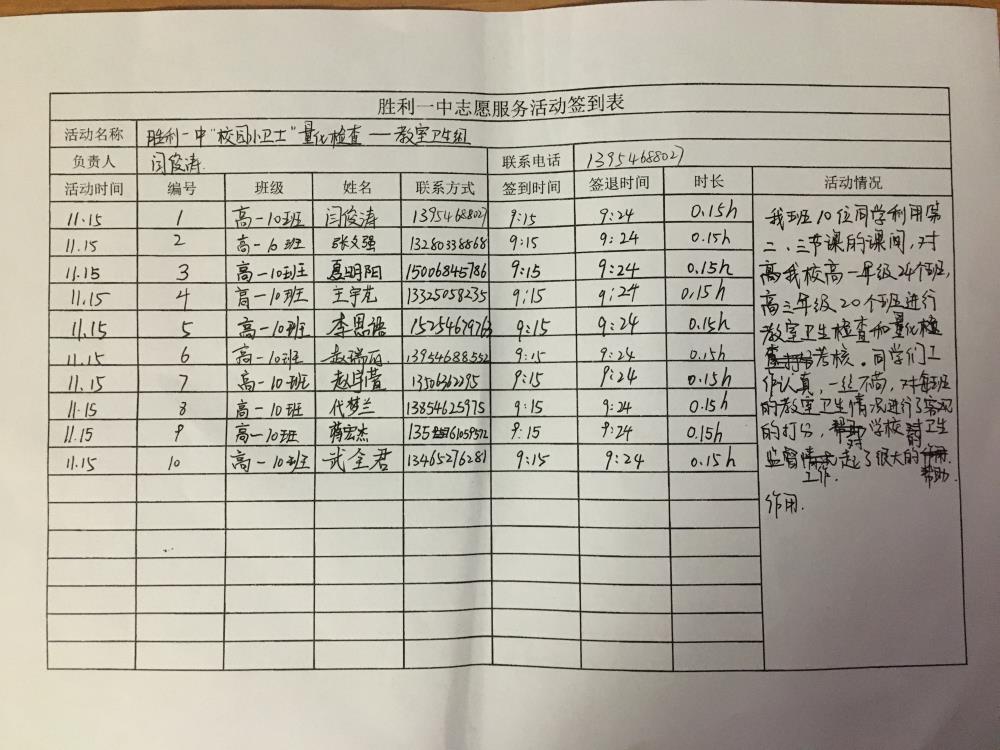 胜利一中志愿服务活动签到表
活动名称 胜利一中"校园小卫士"量化检查——教室卫生组
负责人 闫俊涛 联系电话 13954688027
活动时间 编号 班级 姓名 联系方式 签到时间 签退时间 时长 活动情况
11.15 1 高一10班 闫俊涛 13954688027 9:15 9:24 0.15h
11.15 2 高一10班 张文强 13280338868 9:15 9:24 0.15h
11.15 3 高一10班 夏明阳 15006845786 9:15 9:24 0.15h
11.15 4 高一10班 王宇龙 13325058235 9:15 9:24 0.15h
11.15 5 高一10班 李思语 15254679763 9:15 9:24 0.15h
11.15 6 高一10班 赵瑞雨 13954688552 9:15 9:24 0.15h
11.15 7 高一10班 9:15 9:24 0.15h
11.15 8 高一10班 代梦兰 13854625975 9:15 9:24 0.15h
11.15 9 高一10班 蒋宏杰 9:15 9:24 0.15h
11.15 10 高一10班 武全君 13465276281 9:15 9:24 0.15h
我班10位同学利用第
二、三节课的课间,对
我校高一年级24个班,
高三年级20个班进行
教室卫生检查和量化检
查考核。同学们工
作认真,一丝不苟,对每班
的教室卫生情况进行了客观
的打分,对学校的卫生
监督工作起了很大的帮助
作用.